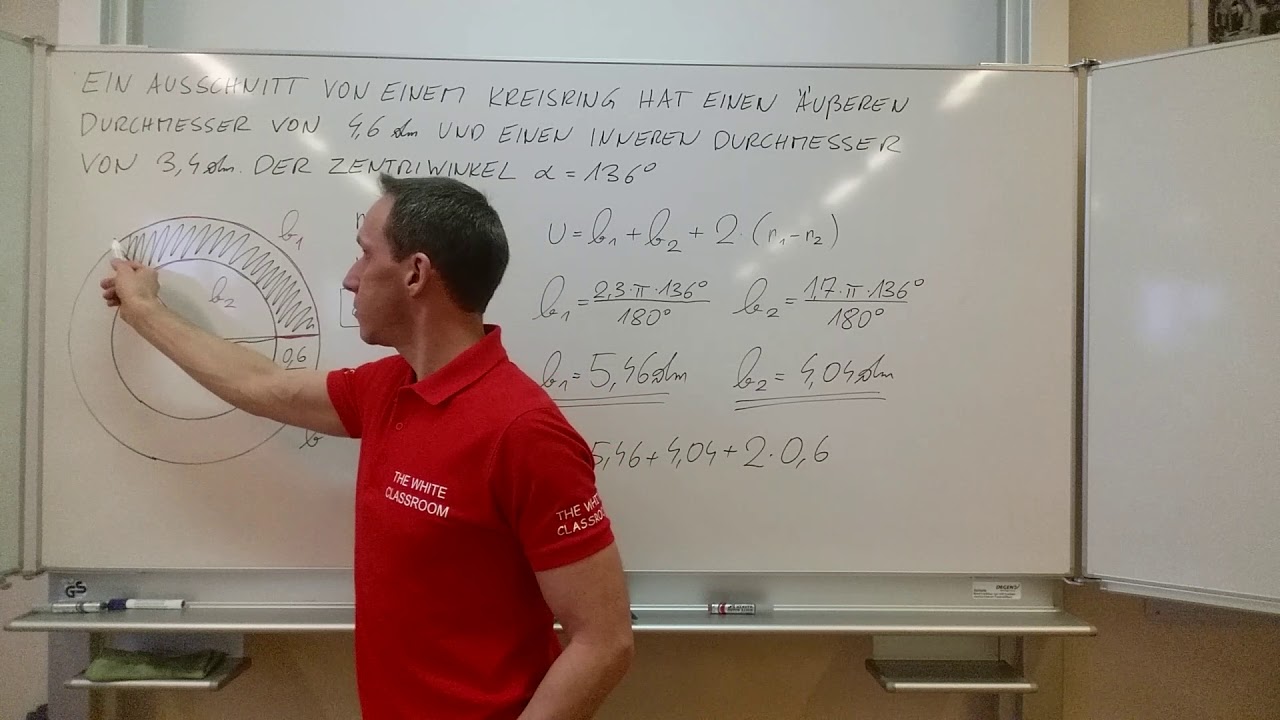 EIN AUSSCHNITT VON EINEM KREISRING HAT EINEN ÄUßEREN
DURCHMESSER VON 4,6 dm UND EINEN INNEREN DURCHMESSER
VON 3,4 dm. DER ZENTRIWINKEL α = 136°
b₁
b₂
0,6
b
U = b₁ + b₂ + 2·(r₁-r₂)
b₁ = 2,3·π·136° / 180° b₂ = 1,7·π·136° / 180°
b₁ = 5,46 dm b₂ = 4,04 dm
5,46 + 4,04 + 2·0,6
THE WHITE
CLASSROOM
THE WHITE
GS